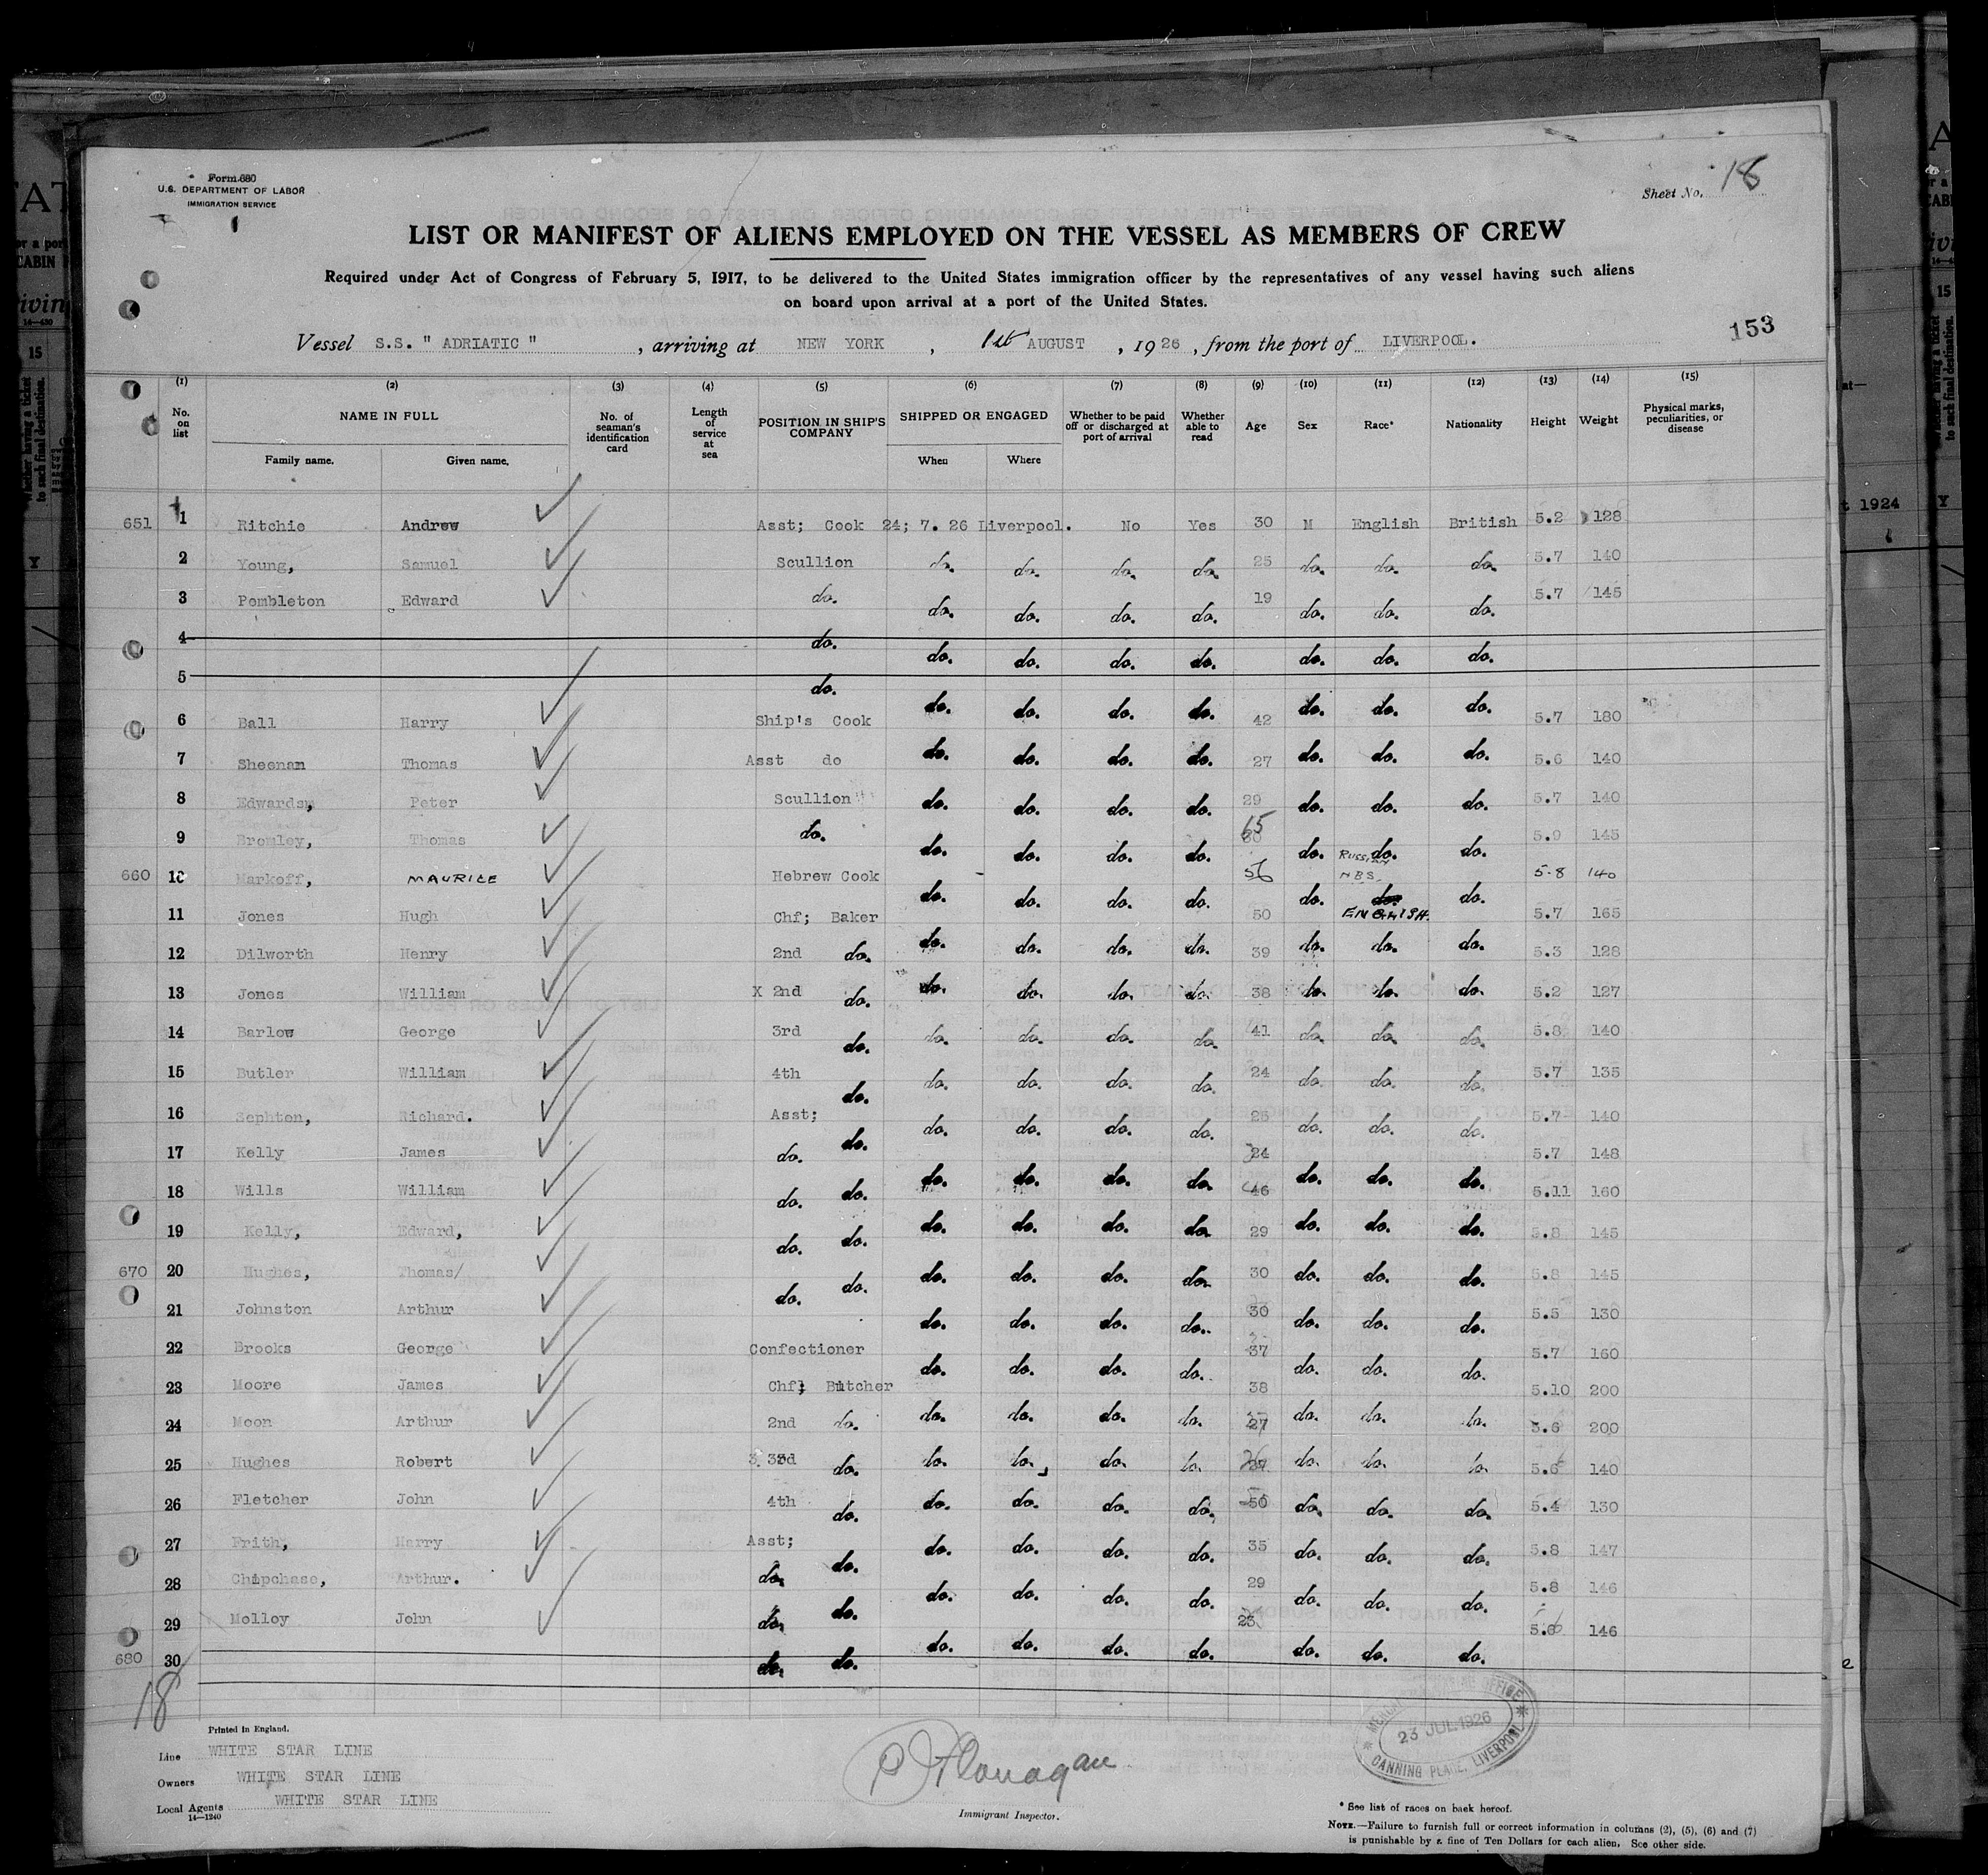 Form 680
U.S. DEPARTMENT OF LABOR
IMMIGRATION SERVICE
Sheet No. 18
LIST OR MANIFEST OF ALIENS EMPLOYED ON THE VESSEL AS MEMBERS OF CREW
Required under Act of Congress of February 5, 1917, to be delivered to the United States immigration officer by the representatives of any vessel having such aliens
on board upon arrival at a port of the United States.
153
Vessel S.S. " ADRIATIC " , arriving at NEW YORK , 1st AUGUST , 1926 , from the port of LIVERPOOL.
(1) (2) (3) (4) (5) (6) (7) (8) (9) (10) (11) (12) (13) (14) (15)
No. on list NAME IN FULL No. of seaman's identification card Length of service at sea POSITION IN SHIP'S COMPANY SHIPPED OR ENGAGED Whether to be paid off or discharged at port of arrival Whether able to read Age Sex Race* Nationality Height Weight Physical marks, peculiarities, or disease
Family name. Given name. When Where
651 1 Ritchie Andrew Asst; Cook 24; 7. 26 Liverpool. No Yes 30 M English British 5.2 128
2 Young, Samuel Scullion do. do. do. do. 25 do. do. do. 5.7 140
3 Pembleton Edward do. do. do. do. do. 19 do. do. do. 5.7 145
4 do. do. do. do. do. do. do. do.
5 do.
6 Ball Harry Ship's Cook do. do. do. do. 42 do. do. do. 5.7 180
7 Sheenan Thomas Asst do do. do. do. do. 27 do. do. do. 5.6 140
8 Edwards, Peter Scullion do. do. do. do. 29 do. do. do. 5.7 140
9 Bromley, Thomas do. do. do. do. do. 65 do. do. do. 5.9 145
660 10 Markoff, MAURICE Hebrew Cook do. do. do. do. 56 do. Russian HBS do. 5-8 140
11 Jones Hugh Chf; Baker 50 ENGLISH. 5.7 165
12 Dilworth Henry 2nd do. do. do. do. do. 39 do. do. do. 5.3 128
13 Jones William X 2nd do. do. do. do. do. 38 do. do. do. 5.2 127
14 Barlow George 3rd do. do. do. do. do. 41 do. do. do. 5.8 140
15 Butler William 4th do. do. do. do. do. 24 do. do. do. 5.7 135
16 Sephton, Richard. Asst; do. do. do. do. do. 25 do. do. do. 5.7 140
17 Kelly James do. do. do. do. do. do. 24 do. do. do. 5.7 148
18 Wills William do. do. 46 5.11 160
19 Kelly, Edward, do. do. do. do. do. do. 29 do. do. do. 5.8 145
670 20 Hughes, Thomas/ do. do. do. do. do. do. 30 do. do. do. 5.8 145
21 Johnston Arthur do. do. do. do. 30 do. do. do. 5.5 130
22 Brooks George Confectioner do. do. do. do. 37 do. do. do. 5.7 160
23 Moore James Chf; Butcher 38 5.10 200
24 Moon Arthur 2nd do. do. do. do. do. 27 do. do. do. 5.6 200
25 Hughes Robert 3rd do. do. do. do. do. do. do. do. 5.6 140
26 Fletcher John 4th do. do. do. do. do. 50 do. do. do. 5.4 130
27 Frith, Harry Asst; do. do. do. do. do. 35 do. do. do. 5.8 147
28 Chipchase, Arthur. do. do. do. do. do. do. 29 do. do. do. 5.8 146
29 Molloy John do. do. do. do. do. do. 23 do. do. do. 5.6 146
680 30 do. do.
18
Printed in England.
Line WHITE STAR LINE
Owners WHITE STAR LINE
Local Agents WHITE STAR LINE
14—1240
P Flanagan
Immigrant Inspector.
MERCANTILE MARINE OFFICE
23 JUL 1926
CANNING PLACE, LIVERPOOL
* See list of races on back hereof.
NOTE.—Failure to furnish full or correct information in columns (2), (5), (6) and (7)
is punishable by a fine of Ten Dollars for each alien. See other side.